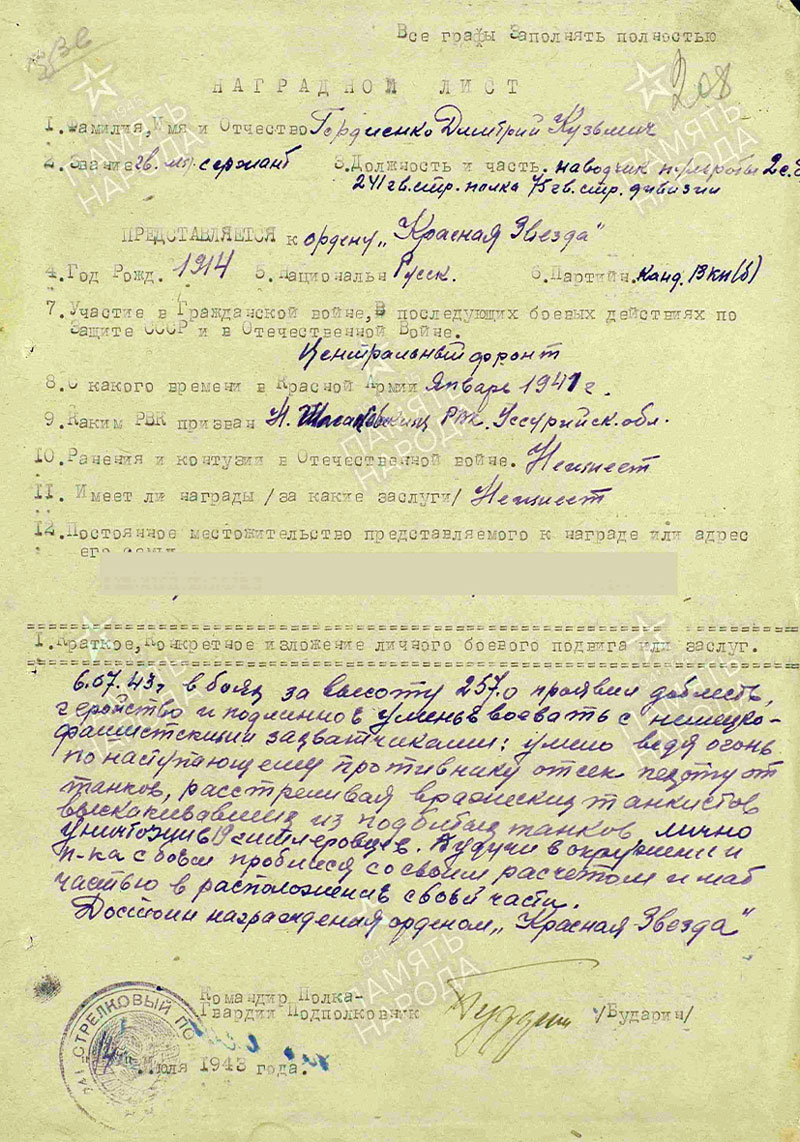 Все графы Заполнять полностью
208
НАГРАДНОЙ ЛИСТ
1. Фамилия, Имя и Отчество Гордиенко Димитрий Кузьмич
2. Звание гв. мл. сержант 3. Должность и часть. наводчик
241 гв. стр. полка 75 гв. стр. дивизии
ПРЕДСТАВЛЯЕТСЯ к ордену „Красная Звезда"
4. Год Рожд. 1914 5. Национальн Русск. 6. Партийн. канд. ВКП(б)
7. Участие в Гражданской войне, В последующих боевых действиях по
Защите СССР и в Отечественной Войне.
Центральный фронт
8. С какого времени в Красной Армии Январь 1941 г.
9. Каким РВК призван Н. РВК. Уссурийск. обл.
10. Ранения и контузии в Отечественной войне. Неимеет
11. Имеет ли награды /за какие заслуги/ Неимеет
12. Постоянное местожительство представляемого к награде или адрес
его семьи
I. Краткое, Конкретное изложение личного боевого подвига или заслуг.
6.07.43г в боях за высоту 257.0 проявил доблесть,
геройство и подлинное уменье воевать с немецко-
фашистскими захватчиками: умело ведя огонь
по наступающему противнику отсек пехоту от
танков, расстреливая вражеских танкистов
выскакивавших из подбитых танков лично
уничтожив 19 гитлеровцев. Будучи в окружении
п-ка с боем пробился со своим расчетом и мат
частью в расположение своей части.
Достоин награждения орденом „Красная Звезда"
Командир Полка-
Гвардии Подполковник /Бударин/
СТРЕЛКОВЫЙ ПО
Июля 1943 года.
ПАМЯТЬ НАРОДА